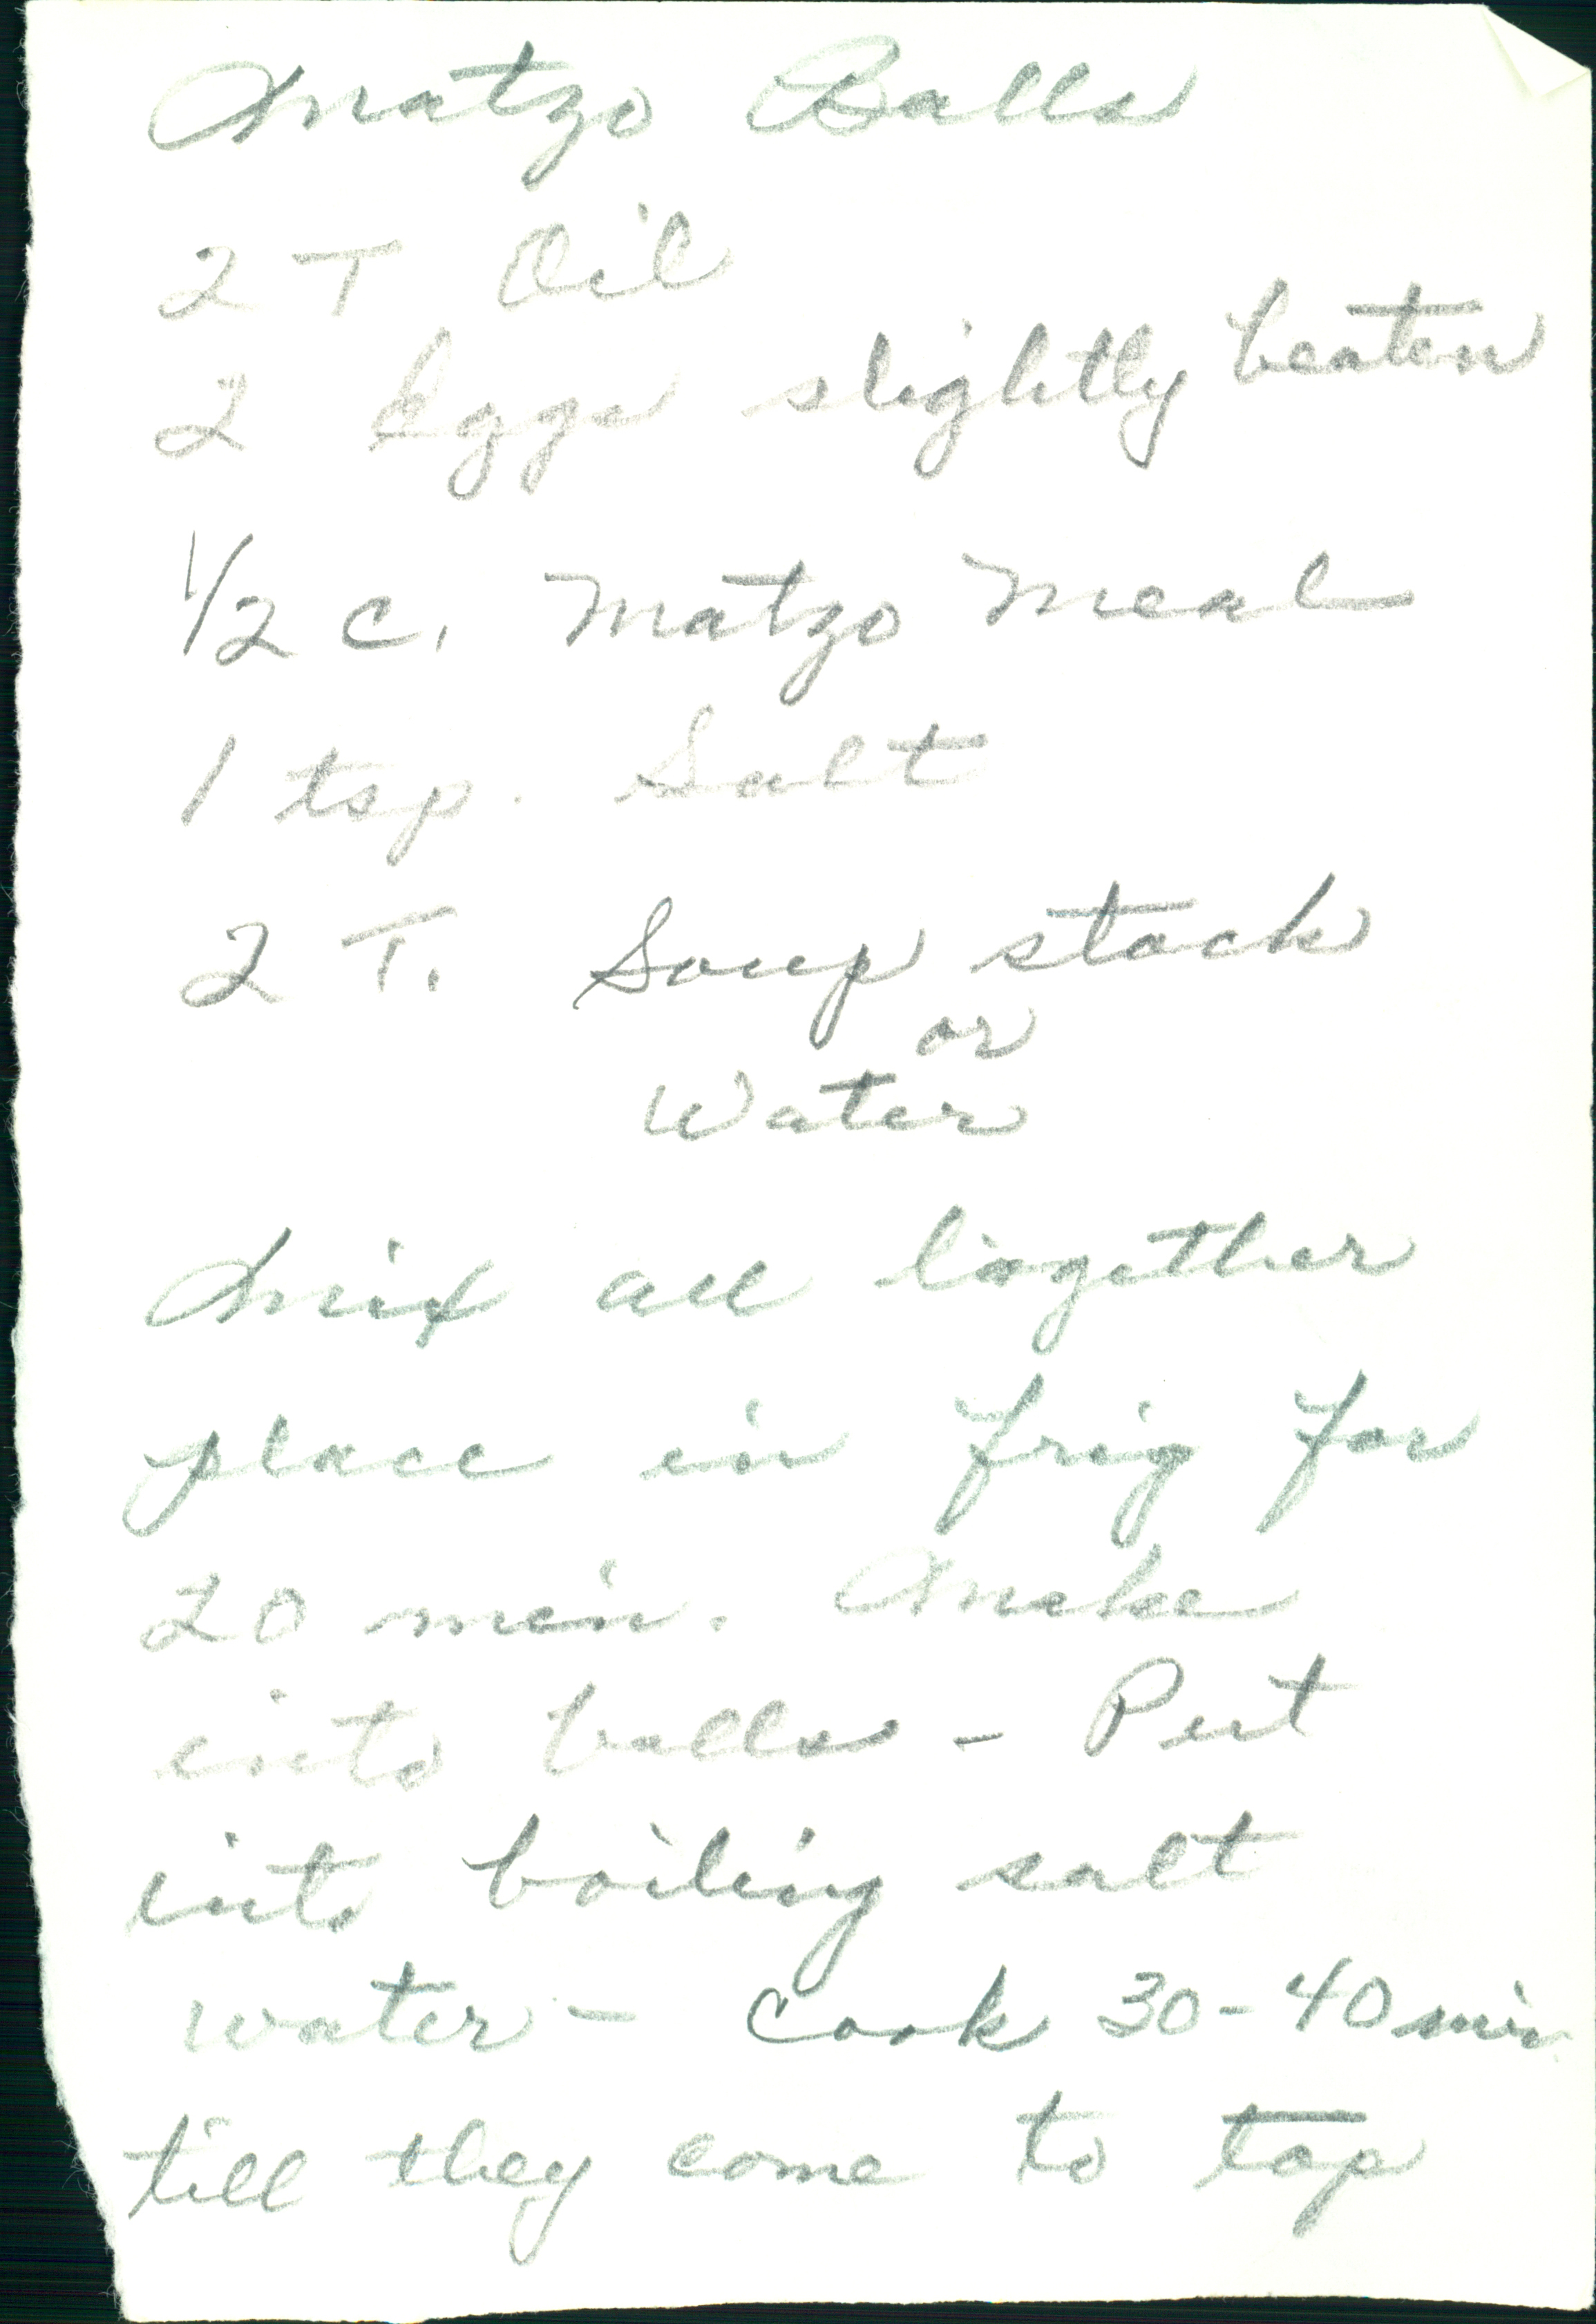 Matzo Balls
2 T Oil
2 Eggs slightly beaten
1/2 c. Matzo Meal
1 tsp. Salt
2 T. Soup stock
or
Water
Mix all together
place in frig for
20 min. Make
into balls - Put
into boiling salt
water - Cook 30-40 min
till they come to top